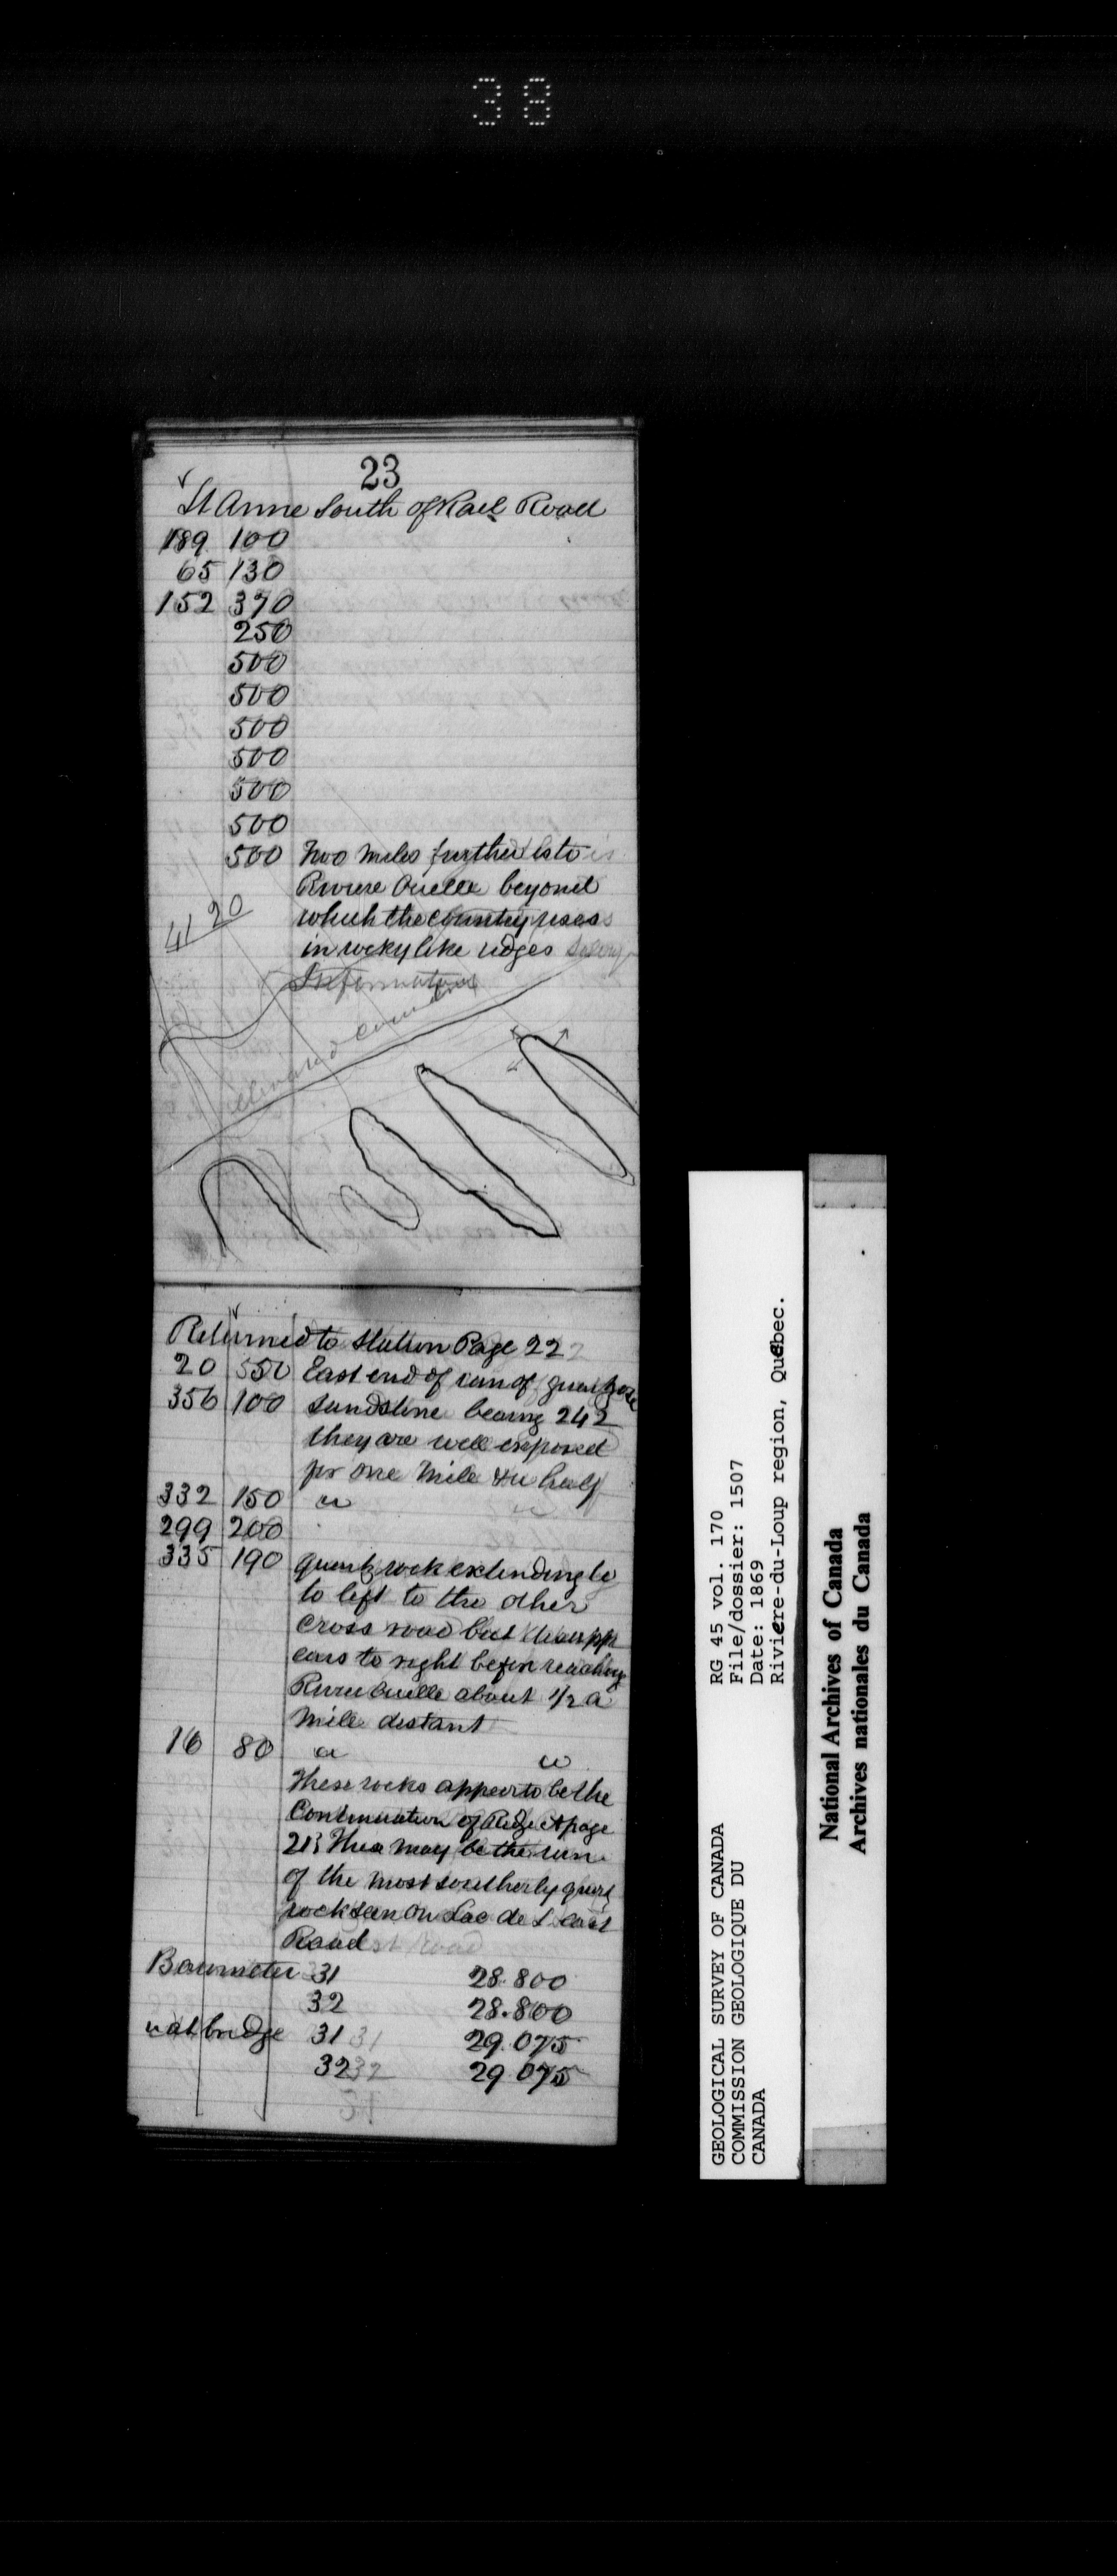 38
23
St Anne South of Rail Road
189 100
65 130
152 370
250
500
500
500
500
500
500
500 Two miles further is to
Riviere Ouelle beyond
20 which the country rises
41 in rocky like ridges
Information
elevated country
Returned to Station Page 22
20 550 East end of run of quartzose
356 100 Sandstone bearing 242
they are well exposed
for one mile & a half
332 150 "
299 200
335 190 quartz rock extending to
to left to the other
cross road but disapp
ears to right before reaching
Riviere Ouelle about 1/2 a
mile distant
16 80 " "
These rocks appear to be the
Continuation of Ridge at page
21; These may be the run
of the most southerly quartz
rock seen on Lac de L est
Road
Barometer 31 28.800
32 28.800
nat bridge 31 29.075
32 29.075
GEOLOGICAL SURVEY OF CANADA RG 45 vol. 170
COMMISSION GEOLOGIQUE DU File/dossier: 1507
CANADA Date: 1869
Riviere-du-Loup region, Québec.
National Archives of Canada
Archives nationales du Canada